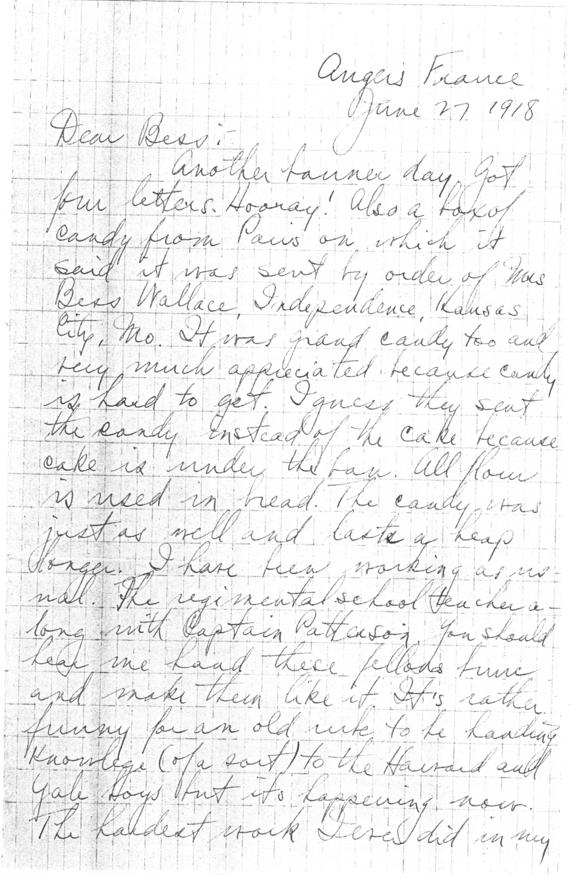 Angers France
June 27 1918
Dear Bess:-
Another banner day. Got
four letters. Hooray! Also a box of
candy from Paris on which it
said it was sent by order of Miss
Bess Wallace, Independence, Kansas
City, Mo. It was grand candy too and
very much appreciated because candy
is hard to get. I guess they sent
the candy instead of the cake because
cake is under the ban. All flour
is used in bread. The candy was
just as well and lasts a heap
longer. I have been working as us-
ual. The regimental school teacher a-
long with Captain Patterson. You should
hear me hand these fellows
and make them like it. It's rather
funny for an old rube to be handing
knowlege (of a sort) to the Harvard and
Yale boys but it's happening now.
The hardest work I ever did in my